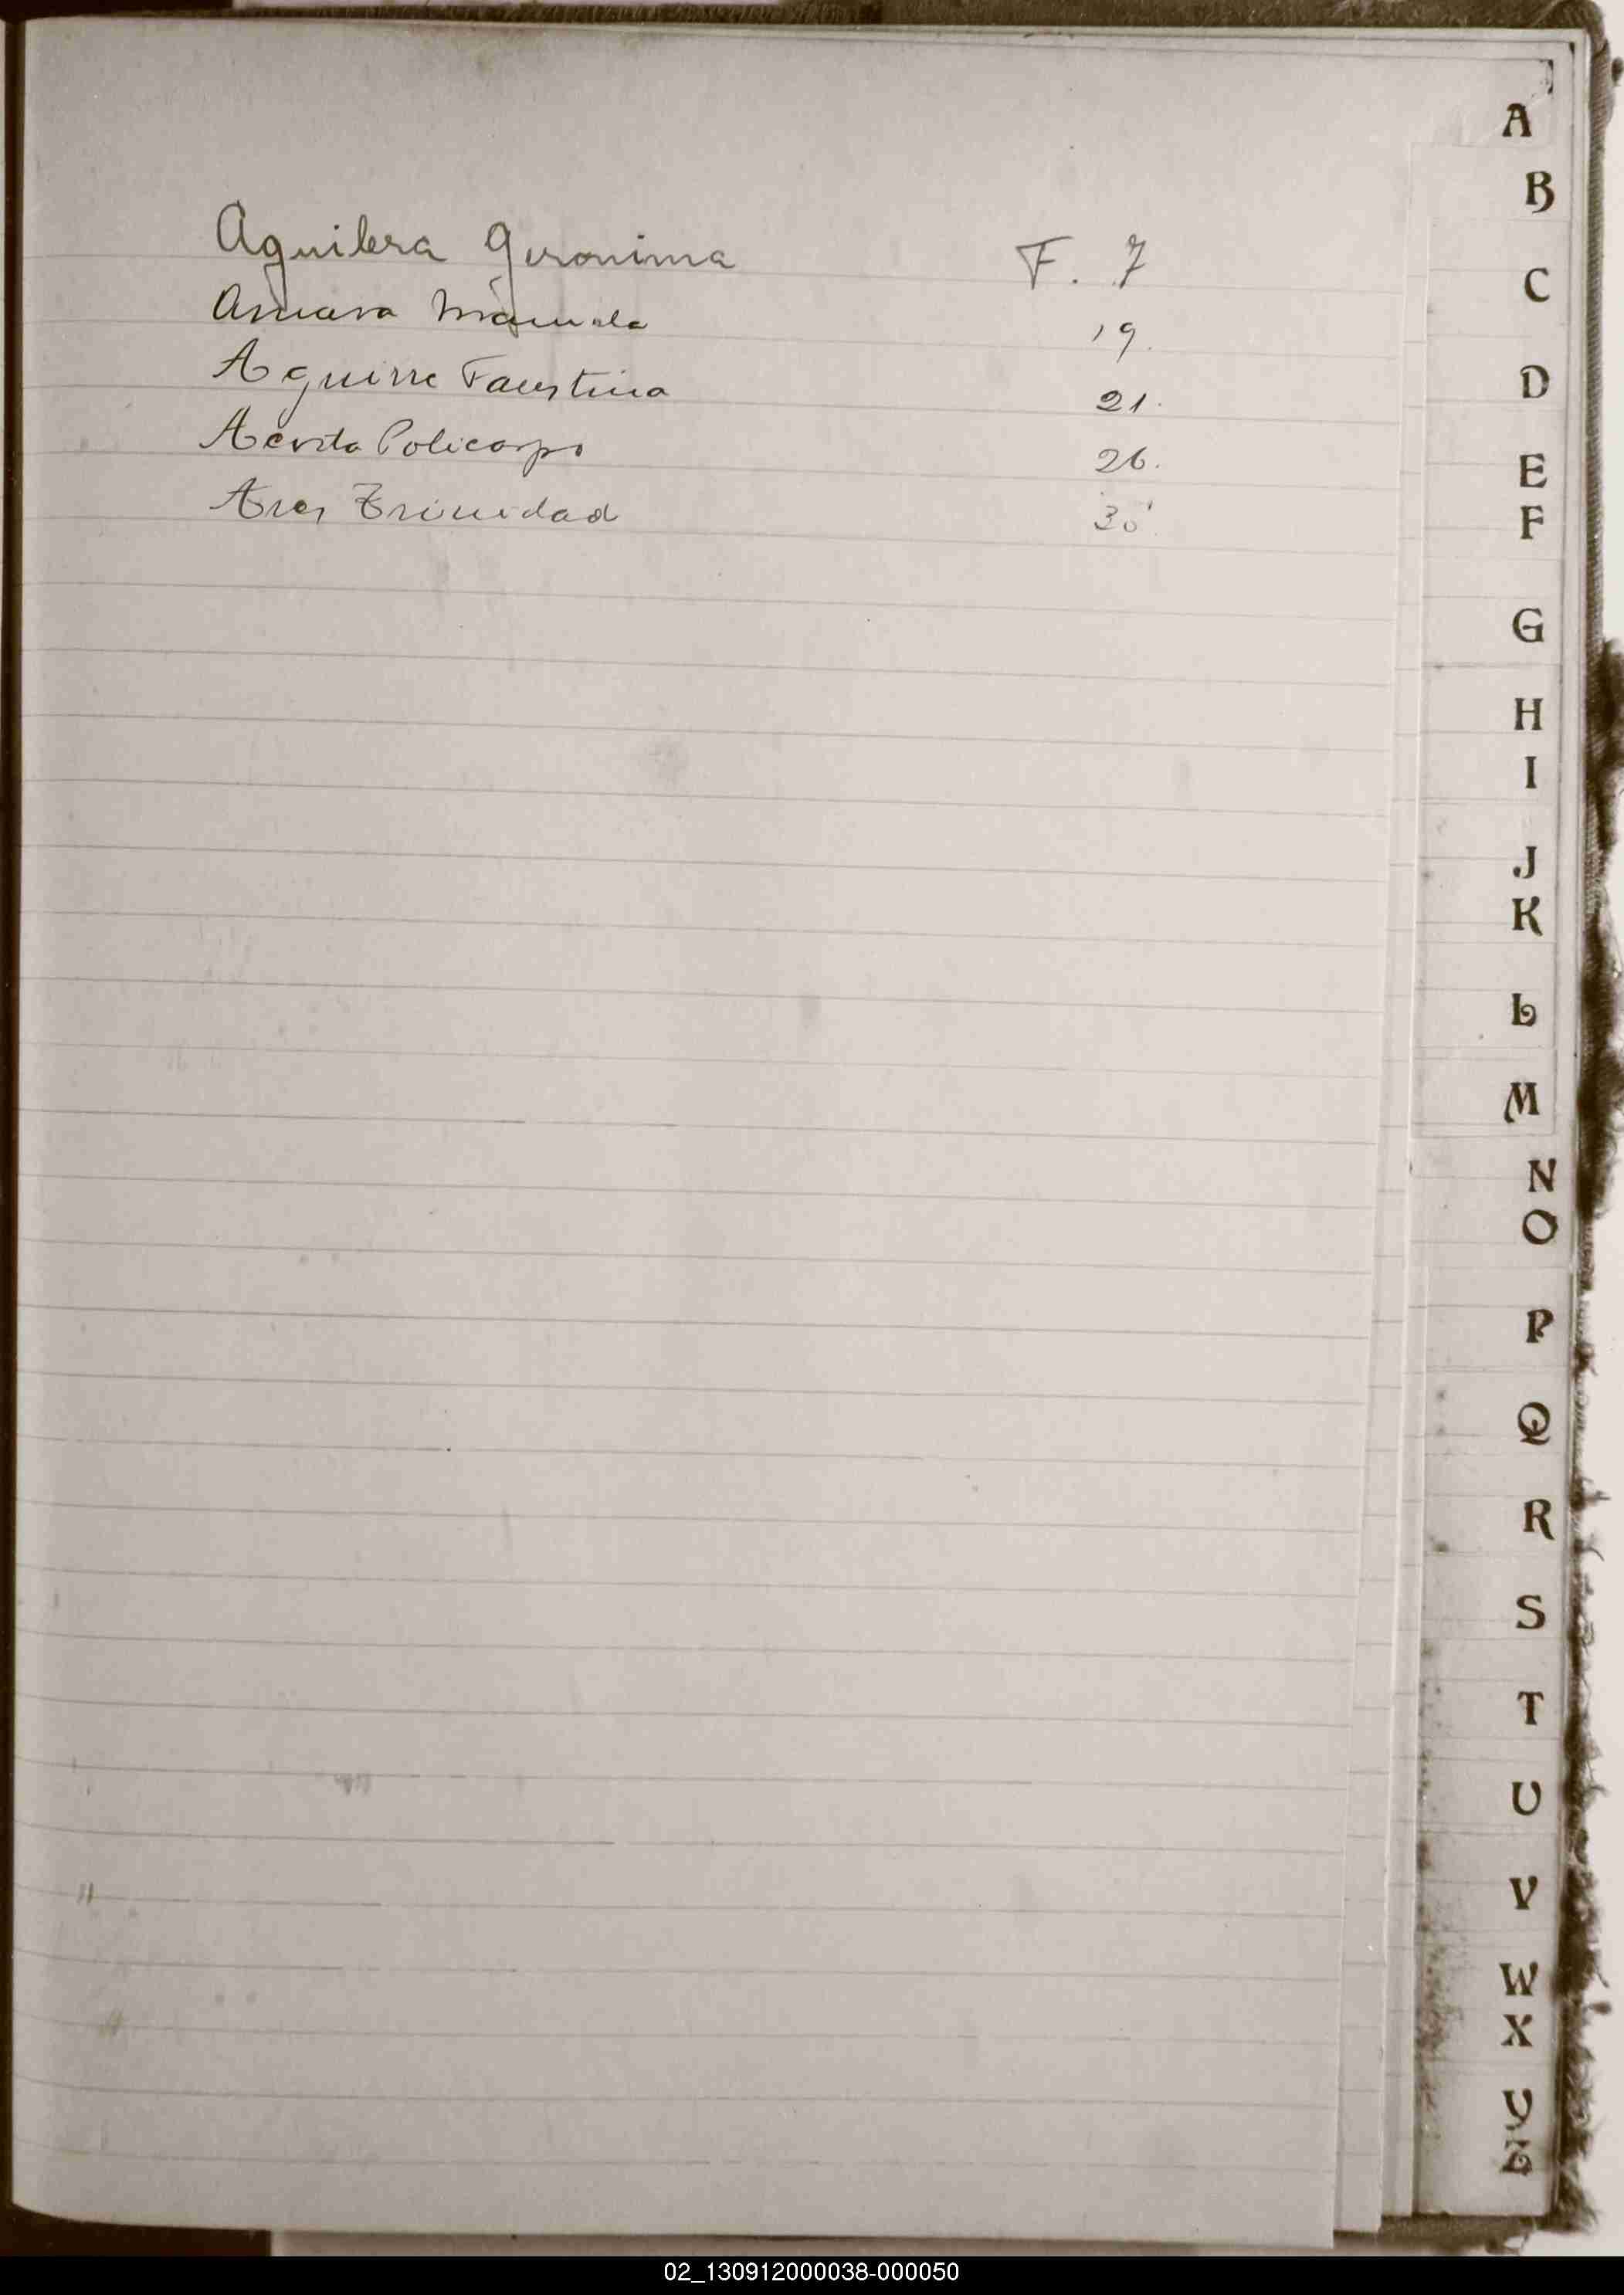 Aguilera Geronima F. 7
Manuela 19.
Aguirre Faustina 21.
Policarpo 26.
Ares Trinidad
A
B
C
D
E
F
G
H
I
J
K
L
M
N
O
P
Q
R
S
T
U
V
W
X
02_130912000038-000050